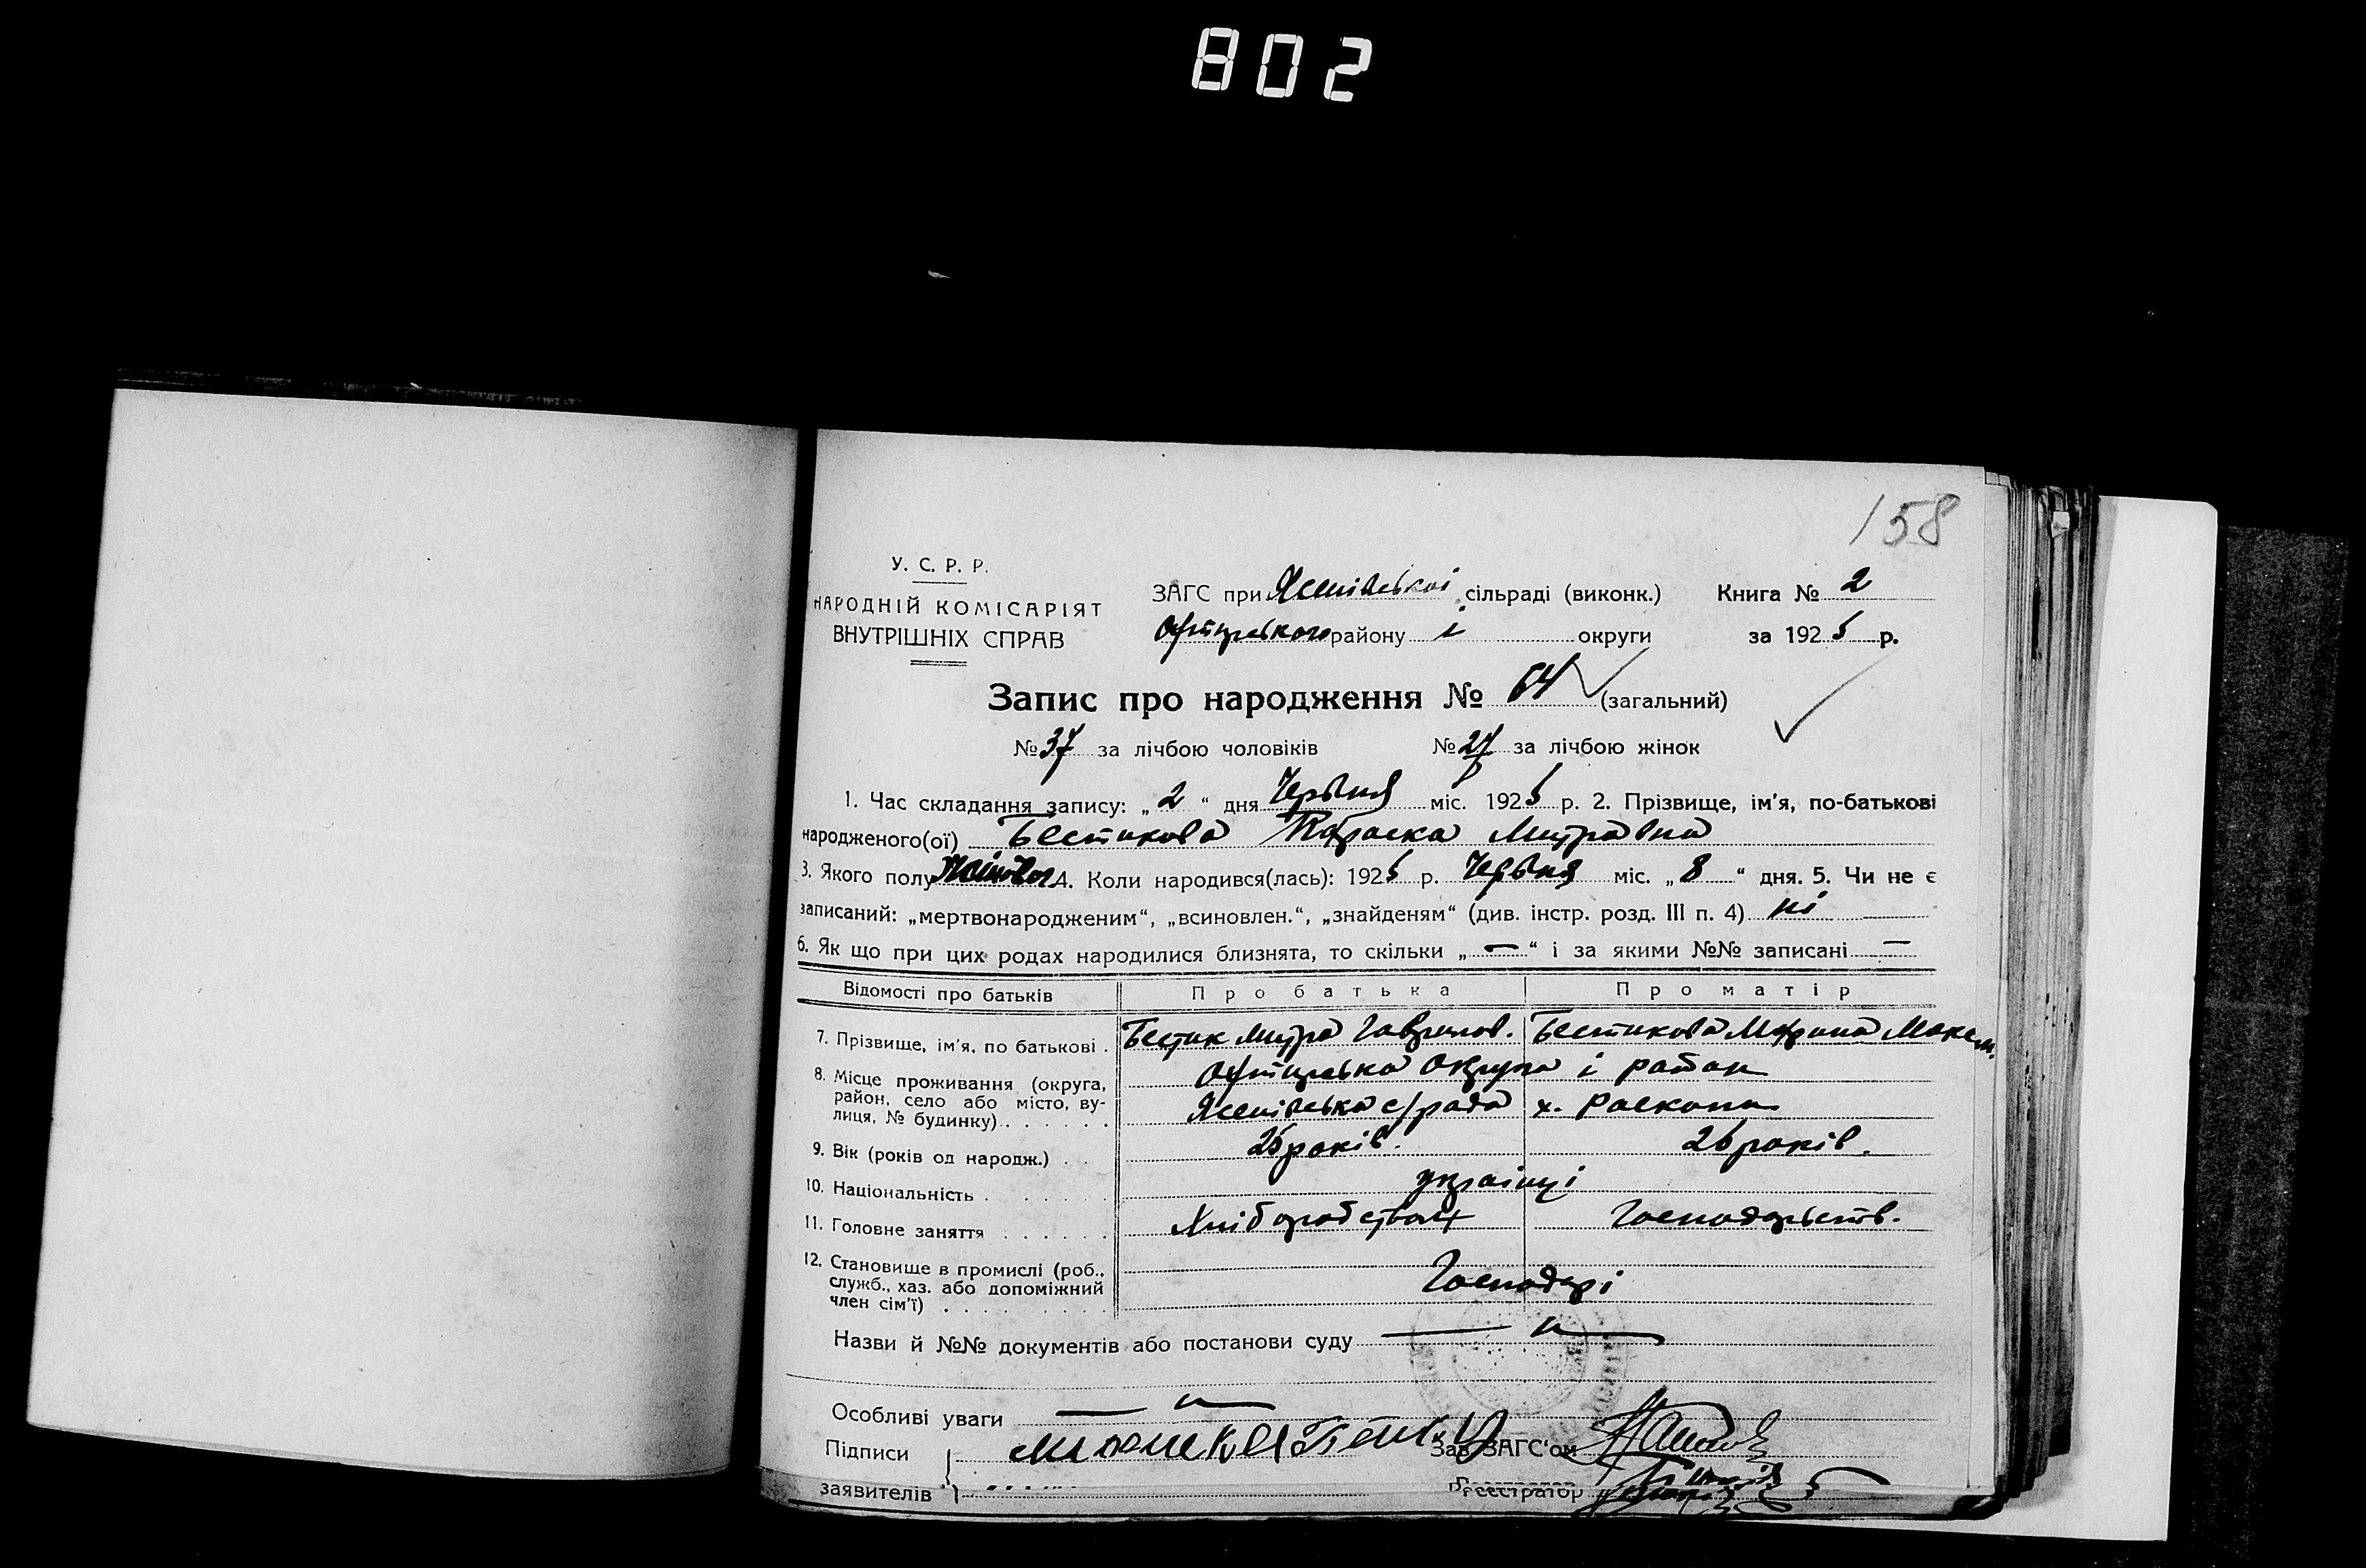 802
158
У. С. Р. Р.
НАРОДНІЙ КОМІСАРІЯТ
ВНУТРІШНІХ СПРАВ
ЗАГС при Ясенівській сільраді (виконк.) Книга № 2
Охтирського району і округи за 1925 р.
Запис про народження № 64 (загальний)
№ 37 за лічбою чоловіків № 27 за лічбою жінок
1. Час складання запису: „2“ дня Червня міс. 1925 р. 2. Прізвище, ім'я, по-батькові
народженого(ої) Бестикова Параска Митравна
3. Якого полу 4. Коли народився(лась): 1925 р. Червня міс. „8“ дня. 5. Чи не є
записаний: „мертвонародженим“, „всиновлен.“, „знайденям“ (див. інстр. розд. III п. 4) ні
6. Як що при цих родах народилися близнята, то скільки „—“ і за якими №№ записані —
Відомості про батьків Про батька Про матір
7. Прізвище, ім'я, по батькові . Бестик Митра Гаврилов. Бестикова Марина Максим.
8. Місце проживання (округа, Охтирська округа і район
район, село або місто, ву- Ясенівська с/рада х.
лиця, № будинку) . . . . . .
9. Вік (років од народж.) . . 25 років. 26 років.
10. Національність . . . . . українці
11. Головне заняття . . . . . . Хліборобством Господарств.
12. Становище в промислі (роб.,
служб., хаз. або допоміжний Господарі
член сім'ї) . . . . . . . . .
Назви й №№ документів або постанови суду — „ —
Особливі уваги — „ —
Підписи Зав. ЗАГС'ом
заявителів Реєстратор